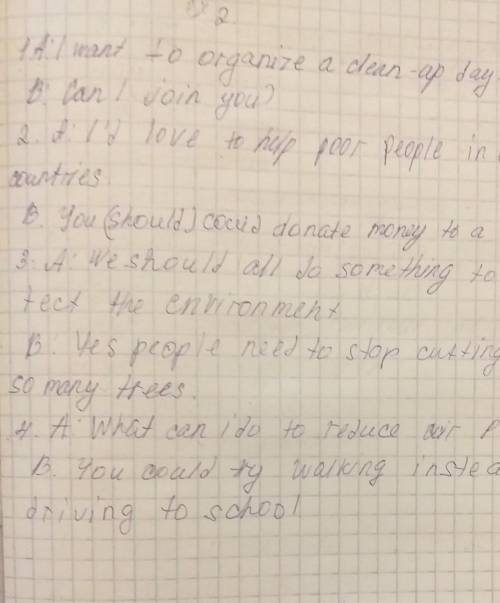 2
1 A: I want to organize a clean-up day.
B: Can I join you?
2. A: I'd love to help poor people in
countries.
B. You (should) could donate money to a
3. A: We should all do something to
tect the environment
B. Yes people need to stop cutting
so many trees.
4. A: What can i do to reduce air p
B. You could ty walking instea
driving to school